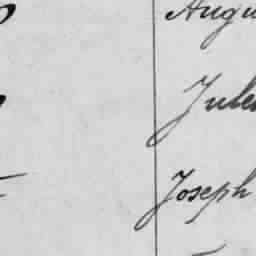 Augu
Jule
Joseph